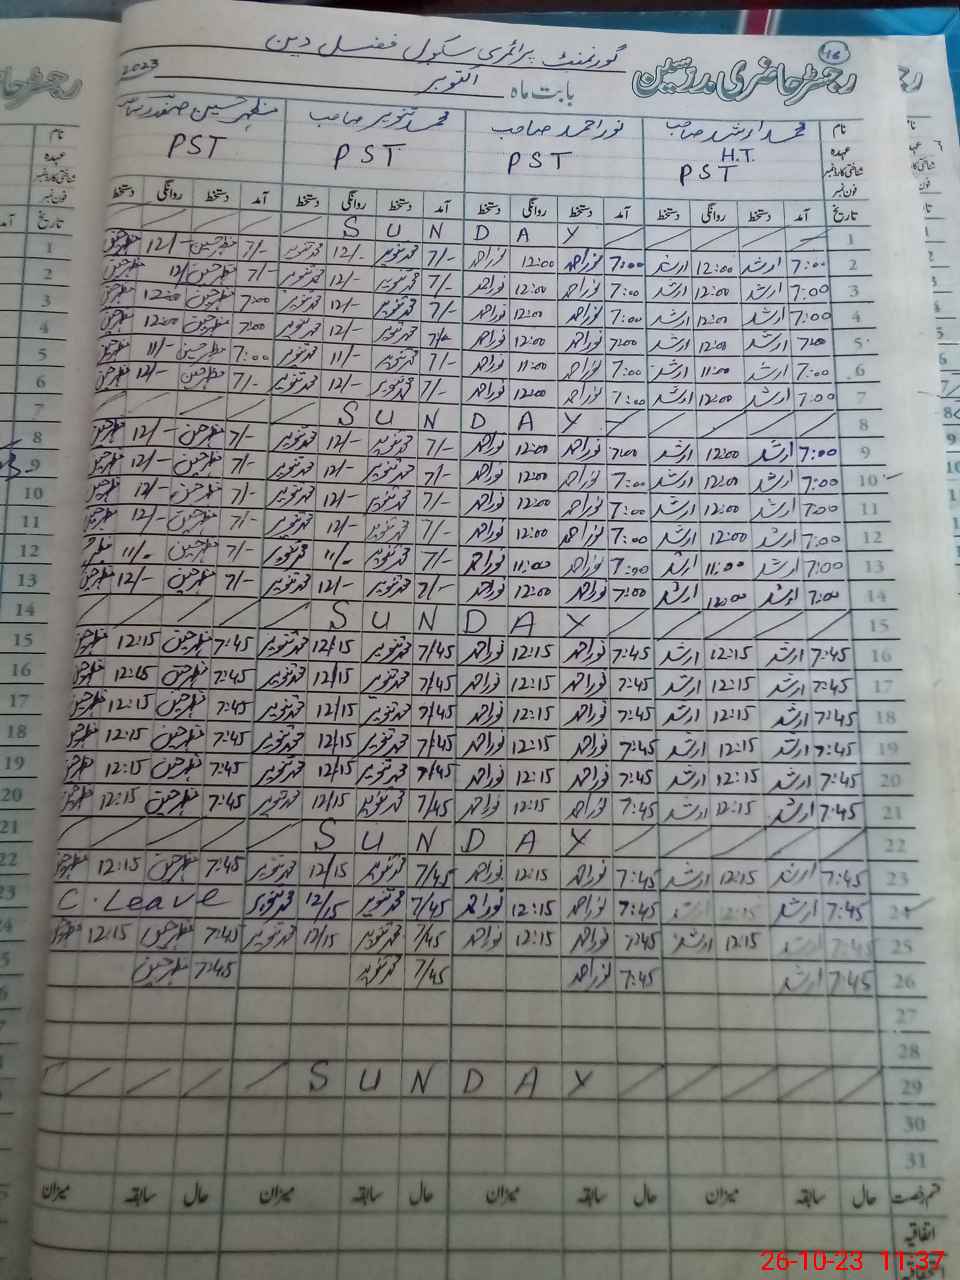 16
رجسٹر حاضری مدرسین
گورنمنٹ پرائمری سکول فضل دین
بابت ماہ اکتوبر 2023
نام محمد ارشد صاحب نور احمد صاحب محمد تنویر صاحب مظہر حسین صفدر صاحب
عہدہ H.T. PST PST PST PST
شناختی کارڈ نمبر
فون نمبر
تاریخ آمد دستخط روانگی دستخط آمد دستخط روانگی دستخط آمد دستخط روانگی دستخط آمد دستخط روانگی دستخط
1 SUNDAY
2 7:00 ارشد 12:00 ارشد 7:00 نور احمد 12:00 نور احمد 7/- محمد تنویر 12/- محمد تنویر 7/- مظہر حسین 12/- مظہر حسین
3 7:00 ارشد 12:00 ارشد 7:00 نور احمد 12:00 نور احمد 7/- محمد تنویر 12/- محمد تنویر 7/- مظہر حسین 12/- مظہر حسین
4 7:00 ارشد 12:00 ارشد 7:00 نور احمد 12:00 نور احمد 7/- محمد تنویر 12/- محمد تنویر 7:00 مظہر حسین 12:00 مظہر حسین
5 7:00 ارشد 12:00 ارشد 7:00 نور احمد 12:00 نور احمد 7/- محمد تنویر 12/- محمد تنویر 7:00 مظہر حسین 12:00 مظہر حسین
6 7:00 ارشد 11:00 ارشد 7:00 نور احمد 11:00 نور احمد 7/- محمد تنویر 11/- محمد تنویر 7:00 مظہر حسین 11/- مظہر حسین
7 7:00 ارشد 12:00 ارشد 7:00 نور احمد 12:00 نور احمد 7/- محمد تنویر 12/- محمد تنویر 7/- مظہر حسین 12/- مظہر حسین
8 SUNDAY
9 7:00 ارشد 12:00 ارشد 7:00 نور احمد 12:00 نور احمد 7/- محمد تنویر 12/- محمد تنویر 7/- مظہر حسین 12/- مظہر حسین
10 7:00 ارشد 12:00 ارشد 7:00 نور احمد 12:00 نور احمد 7/- محمد تنویر 12/- محمد تنویر 7/- مظہر حسین 12/- مظہر حسین
11 7:00 ارشد 12:00 ارشد 7:00 نور احمد 12:00 نور احمد 7/- محمد تنویر 12/- محمد تنویر 7/- مظہر حسین 12/- مظہر حسین
12 7:00 ارشد 12:00 ارشد 7:00 نور احمد 12:00 نور احمد 7/- محمد تنویر 12/- محمد تنویر 7/- مظہر حسین 12/- مظہر حسین
13 7:00 ارشد 11:00 ارشد 7:00 نور احمد 11:00 نور احمد 7/- محمد تنویر 11/- محمد تنویر 7/- مظہر حسین 11/-
14 7:00 ارشد 12:00 ارشد 7:00 نور احمد 12:00 نور احمد 7/- محمد تنویر 12/- محمد تنویر 7/- مظہر حسین 12/- مظہر حسین
15 SUNDAY
16 7:45 ارشد 12:15 ارشد 7:45 نور احمد 12:15 نور احمد 7/45 محمد تنویر 12/15 محمد تنویر 7:45 مظہر حسین 12:15 مظہر حسین
17 7:45 ارشد 12:15 ارشد 7:45 نور احمد 12:15 نور احمد 7/45 محمد تنویر 12/15 محمد تنویر 7:45 مظہر حسین 12:15 مظہر حسین
18 7:45 ارشد 12:15 ارشد 7:45 نور احمد 12:15 نور احمد 7/45 محمد تنویر 12/15 محمد تنویر 7:45 مظہر حسین 12:15 مظہر حسین
19 7:45 ارشد 12:15 ارشد 7:45 نور احمد 12:15 نور احمد 7/45 محمد تنویر 12/15 محمد تنویر 7:45 مظہر حسین 12:15 مظہر حسین
20 7:45 ارشد 12:15 ارشد 7:45 نور احمد 12:15 نور احمد 7/45 محمد تنویر 12/15 محمد تنویر 7:45 مظہر حسین 12:15 مظہر حسین
21 7:45 ارشد 12:15 ارشد 7:45 نور احمد 12:15 نور احمد 7/45 محمد تنویر 12/15 محمد تنویر 7:45 مظہر حسین 12:15 مظہر حسین
22 SUNDAY
23 7:45 ارشد 12:15 ارشد 7:45 نور احمد 12:15 نور احمد 7/45 محمد تنویر 12/15 محمد تنویر 7:45 مظہر حسین 12:15 مظہر حسین
24 7:45 ارشد 12:15 ارشد 7:45 نور احمد 12:15 نور احمد 7/45 محمد تنویر 12/15 محمد تنویر C. Leave
25 7:45 ارشد 12:15 ارشد 7:45 نور احمد 12:15 نور احمد 7/45 محمد تنویر 12/15 محمد تنویر 7:45 مظہر حسین 12:15 مظہر حسین
26 7:45 ارشد 7:45 نور احمد 7/45 محمد تنویر 7:45 مظہر حسین
27
28
29 SUNDAY
30
31
قسم رخصت حال سابقہ میزان حال سابقہ میزان حال سابقہ میزان حال سابقہ میزان
اتفاقیہ
26-10-23 11:37